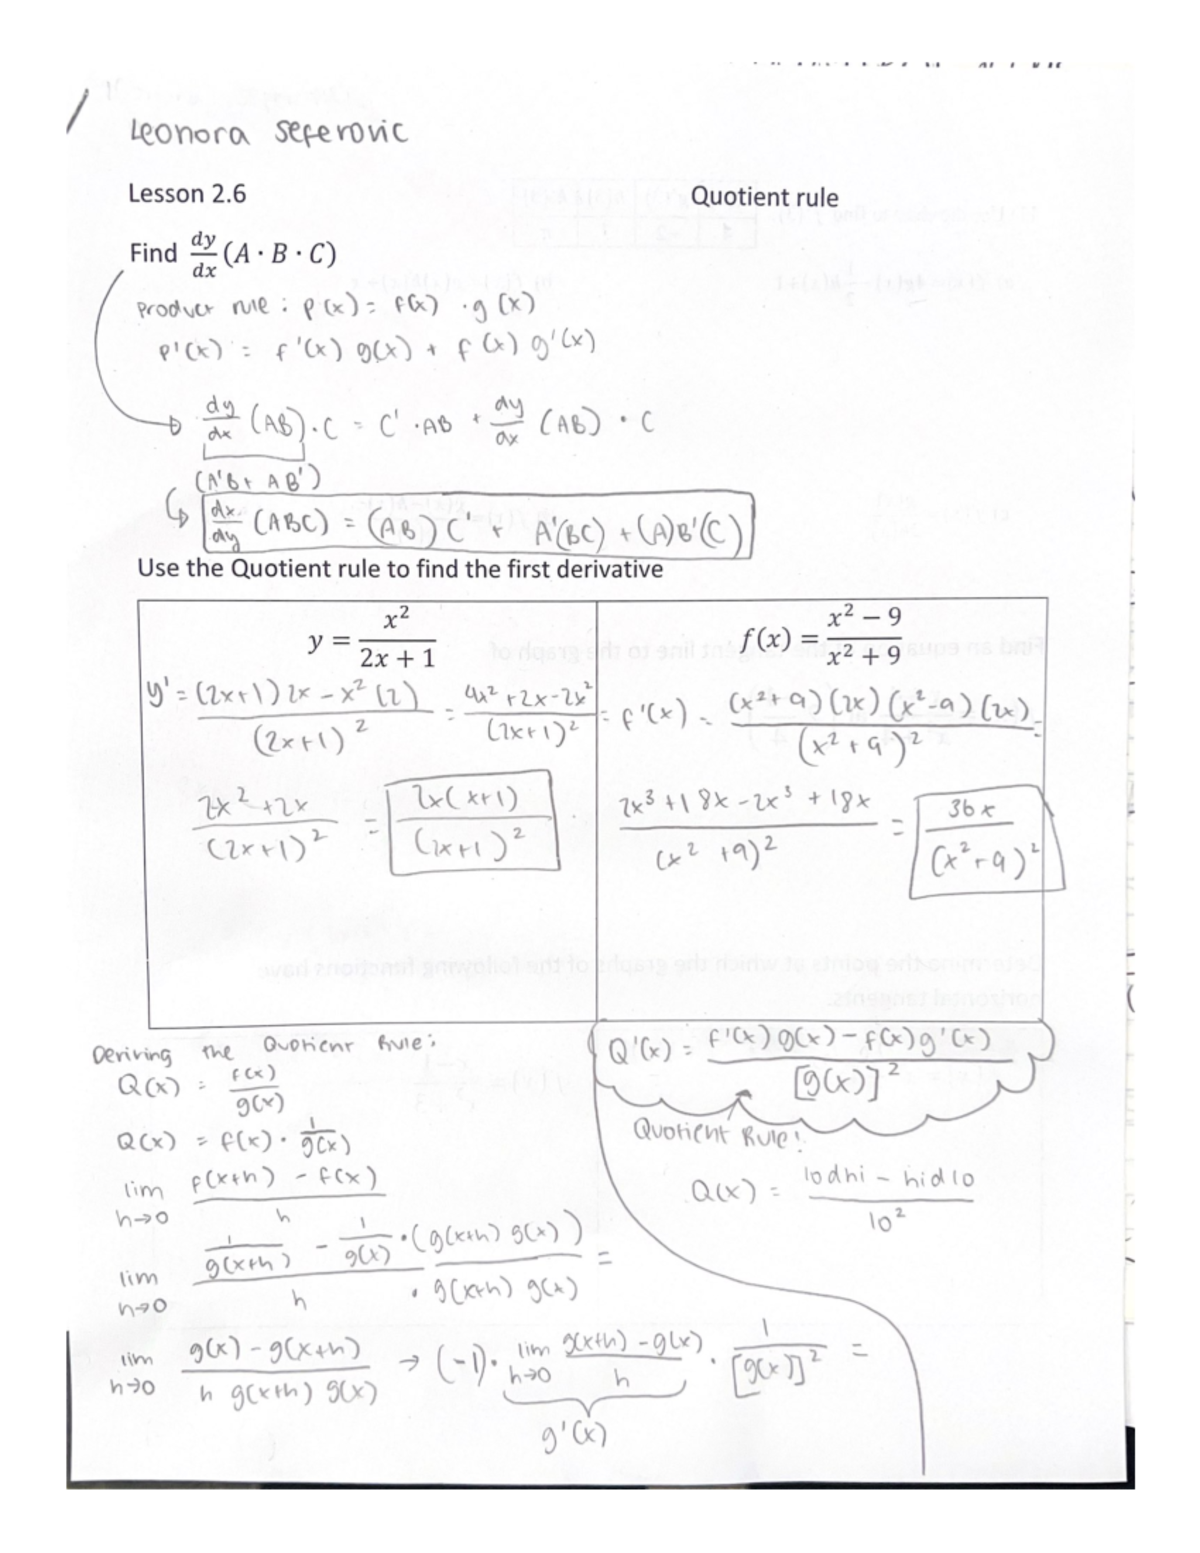 Leonora Seferovic
Lesson 2.6 Quotient rule
Find dy/dx (A · B · C)
Product rule : p(x) = f(x) · g(x)
p'(x) = f'(x) g(x) + f(x) g'(x)
→ dy/dx (AB) · C = C' · AB + dy/dx (AB) · C
(A'B + AB')
↳ dx/dy (ABC) = (AB) C' + A'(BC) + (A)B'(C)
Use the Quotient rule to find the first derivative
y = x²/(2x + 1)
y' = ((2x+1) 2x − x² (2))/(2x+1)² = (4x² + 2x − 2x²)/(2x+1)² =
(2x² + 2x)/(2x+1)² = 2x(x+1)/(2x+1)²
f(x) = (x² − 9)/(x² + 9)
f'(x) = (x² + 9)(2x) (x² − 9)(2x)/(x² + 9)² =
(2x³ + 18x − 2x³ + 18x)/(x² + 9)² = 36x/(x² + 9)²
Deriving the Quotient Rule:
Q(x) = f(x)/g(x)
Q(x) = f(x) · 1/g(x)
lim h→0 (f(x+h) − f(x))/h
lim h→0 (1/g(x+h) − 1/g(x))/h · (g(x+h) g(x))/(g(x+h) g(x)) =
lim h→0 (g(x) − g(x+h))/(h g(x+h) g(x)) → (−1) · lim h→0 (g(x+h) − g(x))/h · 1/[g(x)]² =
g'(x)
Q'(x) = (f'(x) g(x) − f(x) g'(x))/[g(x)]²
Quotient Rule!
Q(x) = (lodhi − hidlo)/lo²